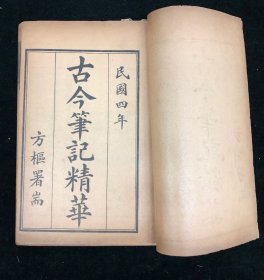 民國四年
古今筆記精華
方樞署耑